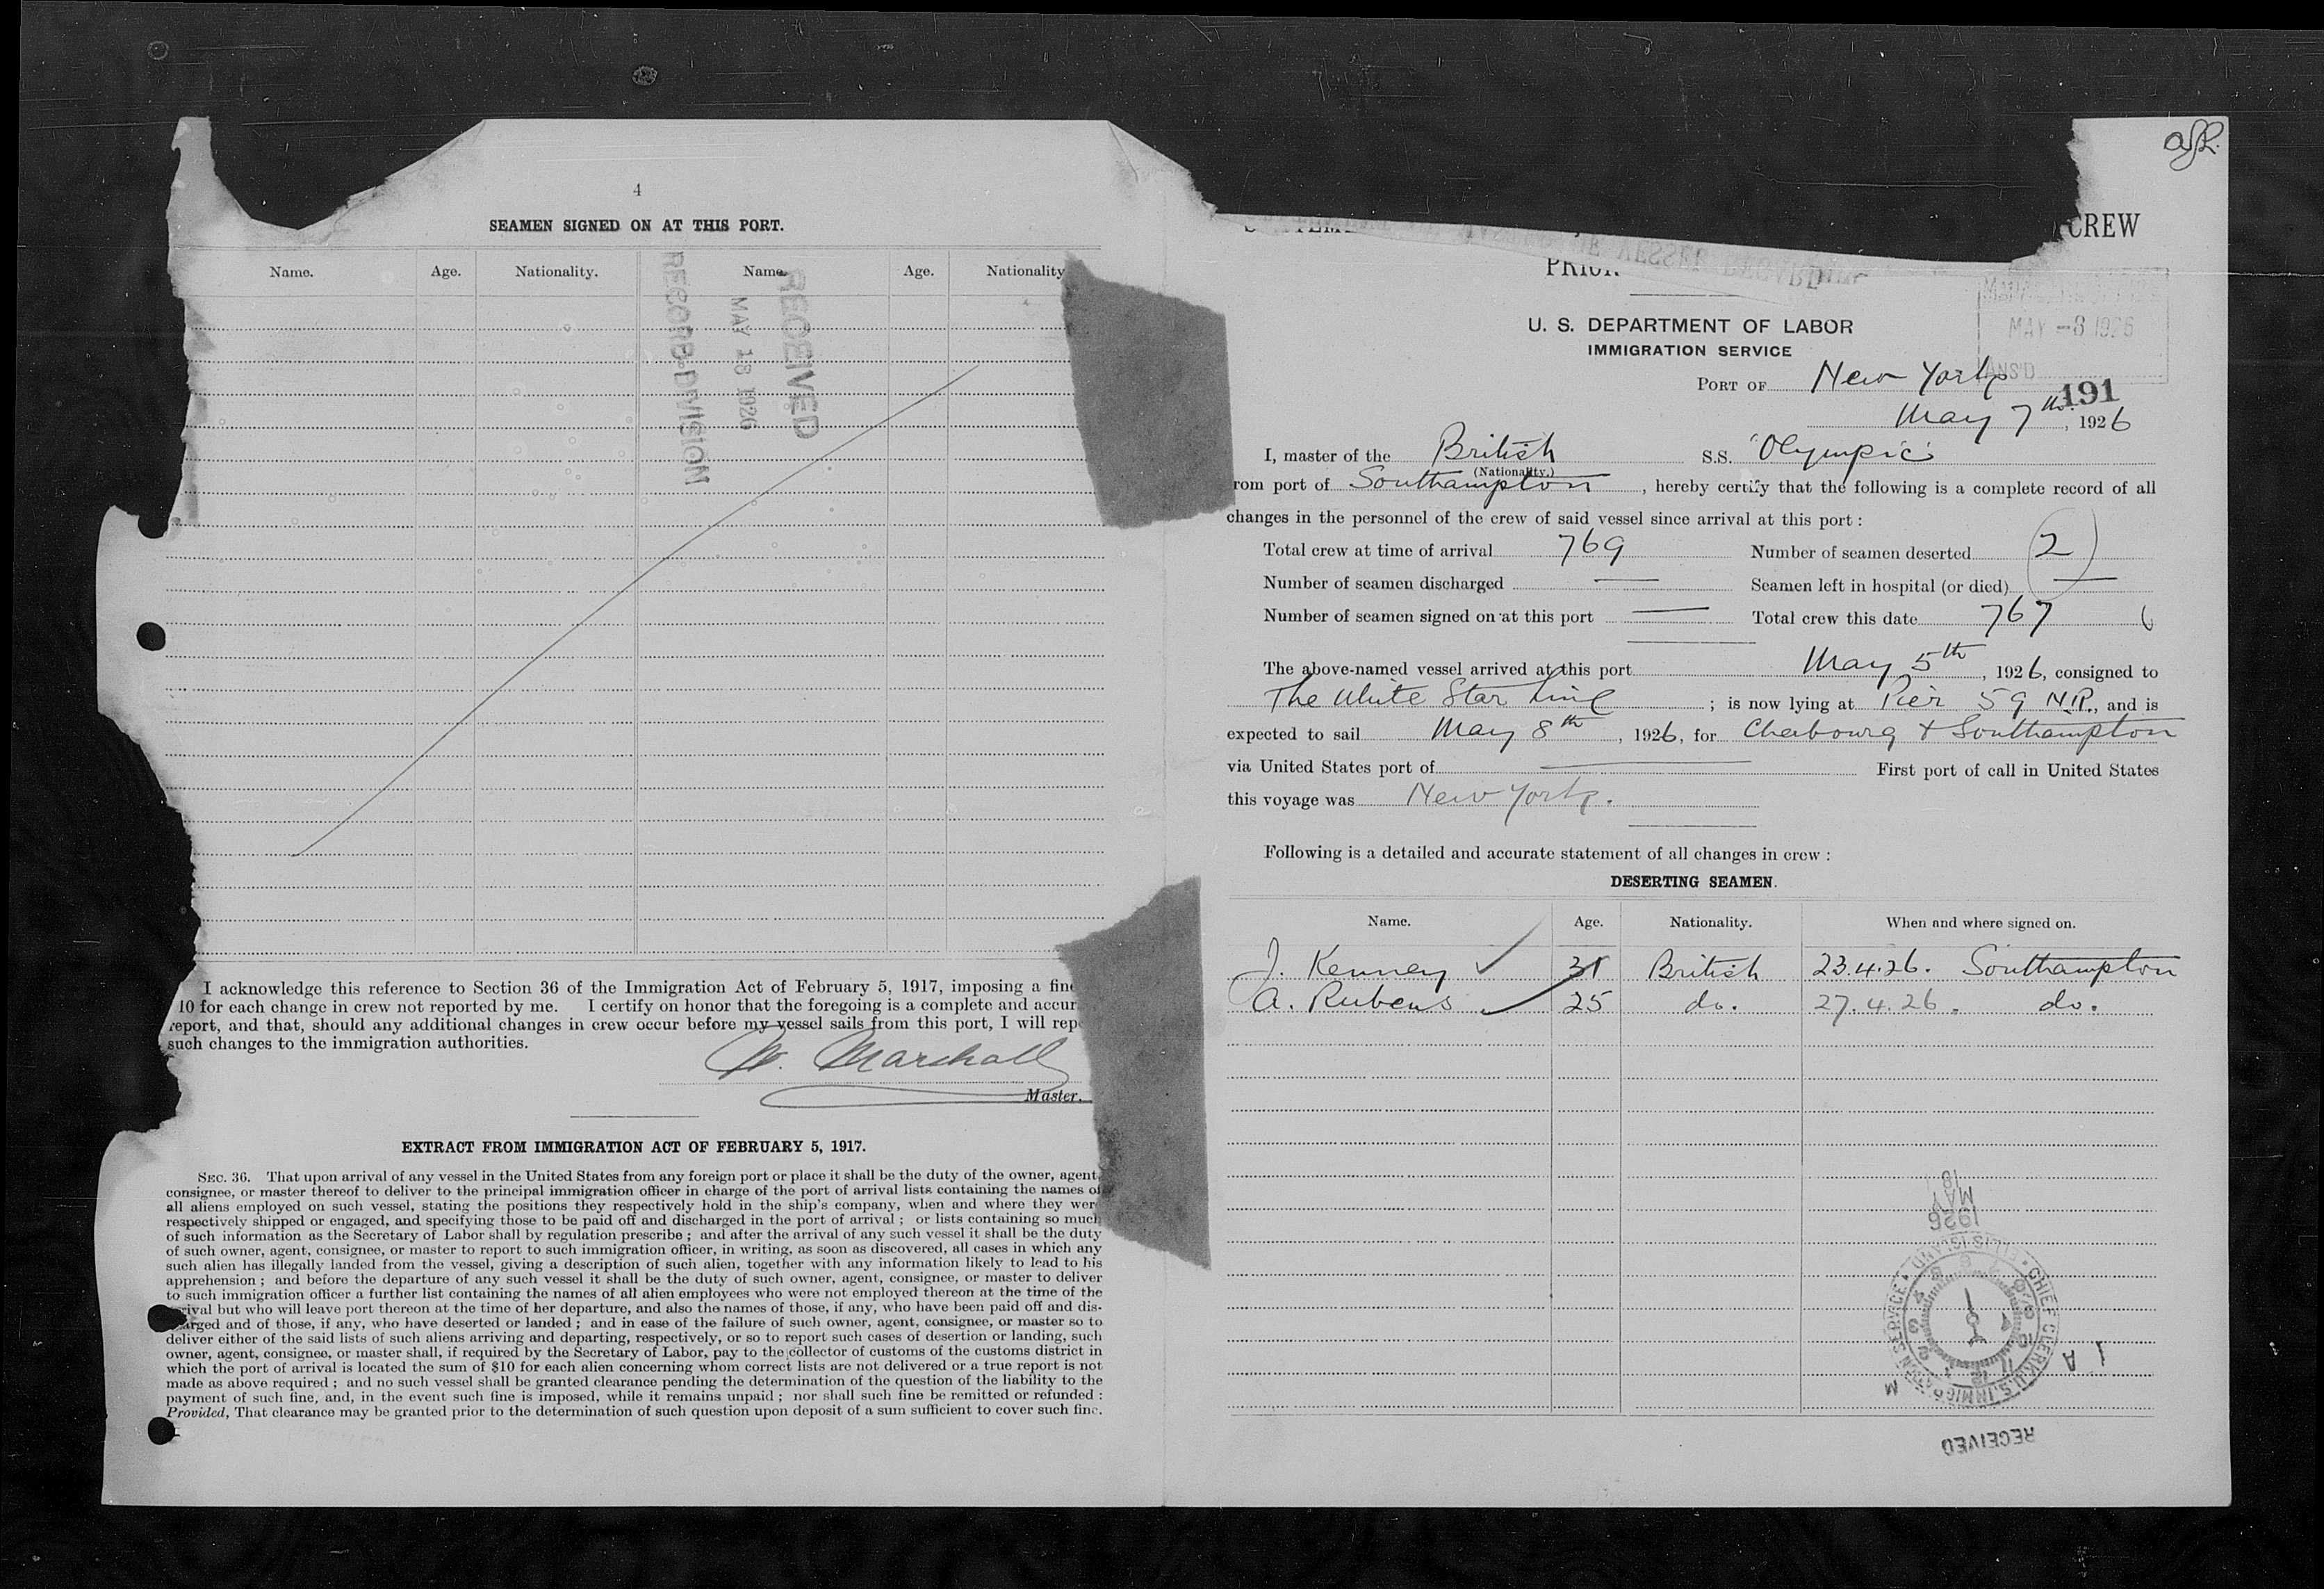 4
SEAMEN SIGNED ON AT THIS PORT.
Name. Age. Nationality. Name. Age. Nationality
RECEIVED
MAY 18 1926
RECORD DIVISION
I acknowledge this reference to Section 36 of the Immigration Act of February 5, 1917, imposing a fine
10 for each change in crew not reported by me. I certify on honor that the foregoing is a complete and accur
report, and that, should any additional changes in crew occur before my vessel sails from this port, I will rep
such changes to the immigration authorities.
W. Marshall
Master.
EXTRACT FROM IMMIGRATION ACT OF FEBRUARY 5, 1917.
SEC. 36. That upon arrival of any vessel in the United States from any foreign port or place it shall be the duty of the owner, agent,
consignee, or master thereof to deliver to the principal immigration officer in charge of the port of arrival lists containing the names of
all aliens employed on such vessel, stating the positions they respectively hold in the ship's company, when and where they were
respectively shipped or engaged, and specifying those to be paid off and discharged in the port of arrival; or lists containing so much
of such information as the Secretary of Labor shall by regulation prescribe; and after the arrival of any such vessel it shall be the duty
of such owner, agent, consignee, or master to report to such immigration officer, in writing, as soon as discovered, all cases in which any
such alien has illegally landed from the vessel, giving a description of such alien, together with any information likely to lead to his
apprehension; and before the departure of any such vessel it shall be the duty of such owner, agent, consignee, or master to deliver
to such immigration officer a further list containing the names of all alien employees who were not employed thereon at the time of the
arrival but who will leave port thereon at the time of her departure, and also the names of those, if any, who have been paid off and dis-
charged and of those, if any, who have deserted or landed; and in case of the failure of such owner, agent, consignee, or master so to
deliver either of the said lists of such aliens arriving and departing, respectively, or so to report such cases of desertion or landing, such
owner, agent, consignee, or master shall, if required by the Secretary of Labor, pay to the collector of customs of the customs district in
which the port of arrival is located the sum of $10 for each alien concerning whom correct lists are not delivered or a true report is not
made as above required; and no vessel shall be granted clearance pending the determination of the question of the liability to the
payment of such fine, and, in the event such fine is imposed, while it remains unpaid; nor shall such fine be remitted or refunded:
Provided, That clearance may be granted prior to the determination of such question upon deposit of a sum sufficient to cover such fine.
CREW
U. S. DEPARTMENT OF LABOR
IMMIGRATION SERVICE
MAY -8 1926
ANS'D
PORT OF New York
191
May 7th, 1926
I, master of the British S.S. "Olympic"
(Nationality.)
rom port of Southampton, hereby certify that the following is a complete record of all
changes in the personnel of the crew of said vessel since arrival at this port:
Total crew at time of arrival 769 Number of seamen deserted 2
Number of seamen discharged — Seamen left in hospital (or died) —
Number of seamen signed on at this port — Total crew this date 767
The above-named vessel arrived at this port May 5th, 1926, consigned to
The White Star Line; is now lying at Pier 59 N.R., and is
expected to sail May 8th, 1926, for Cherbourg & Southampton
via United States port of — First port of call in United States
this voyage was New York.
Following is a detailed and accurate statement of all changes in crew:
DESERTING SEAMEN.
Name. Age. Nationality. When and where signed on.
J. Kenney ✓ 31 British 23.4.26. Southampton
A. Rubens ✓ 25 do. 27.4.26. do.
1926
MAY
CHIEF CLERK U.S. IMMIGRATION SERVICE ELLIS ISLAND
RECEIVED